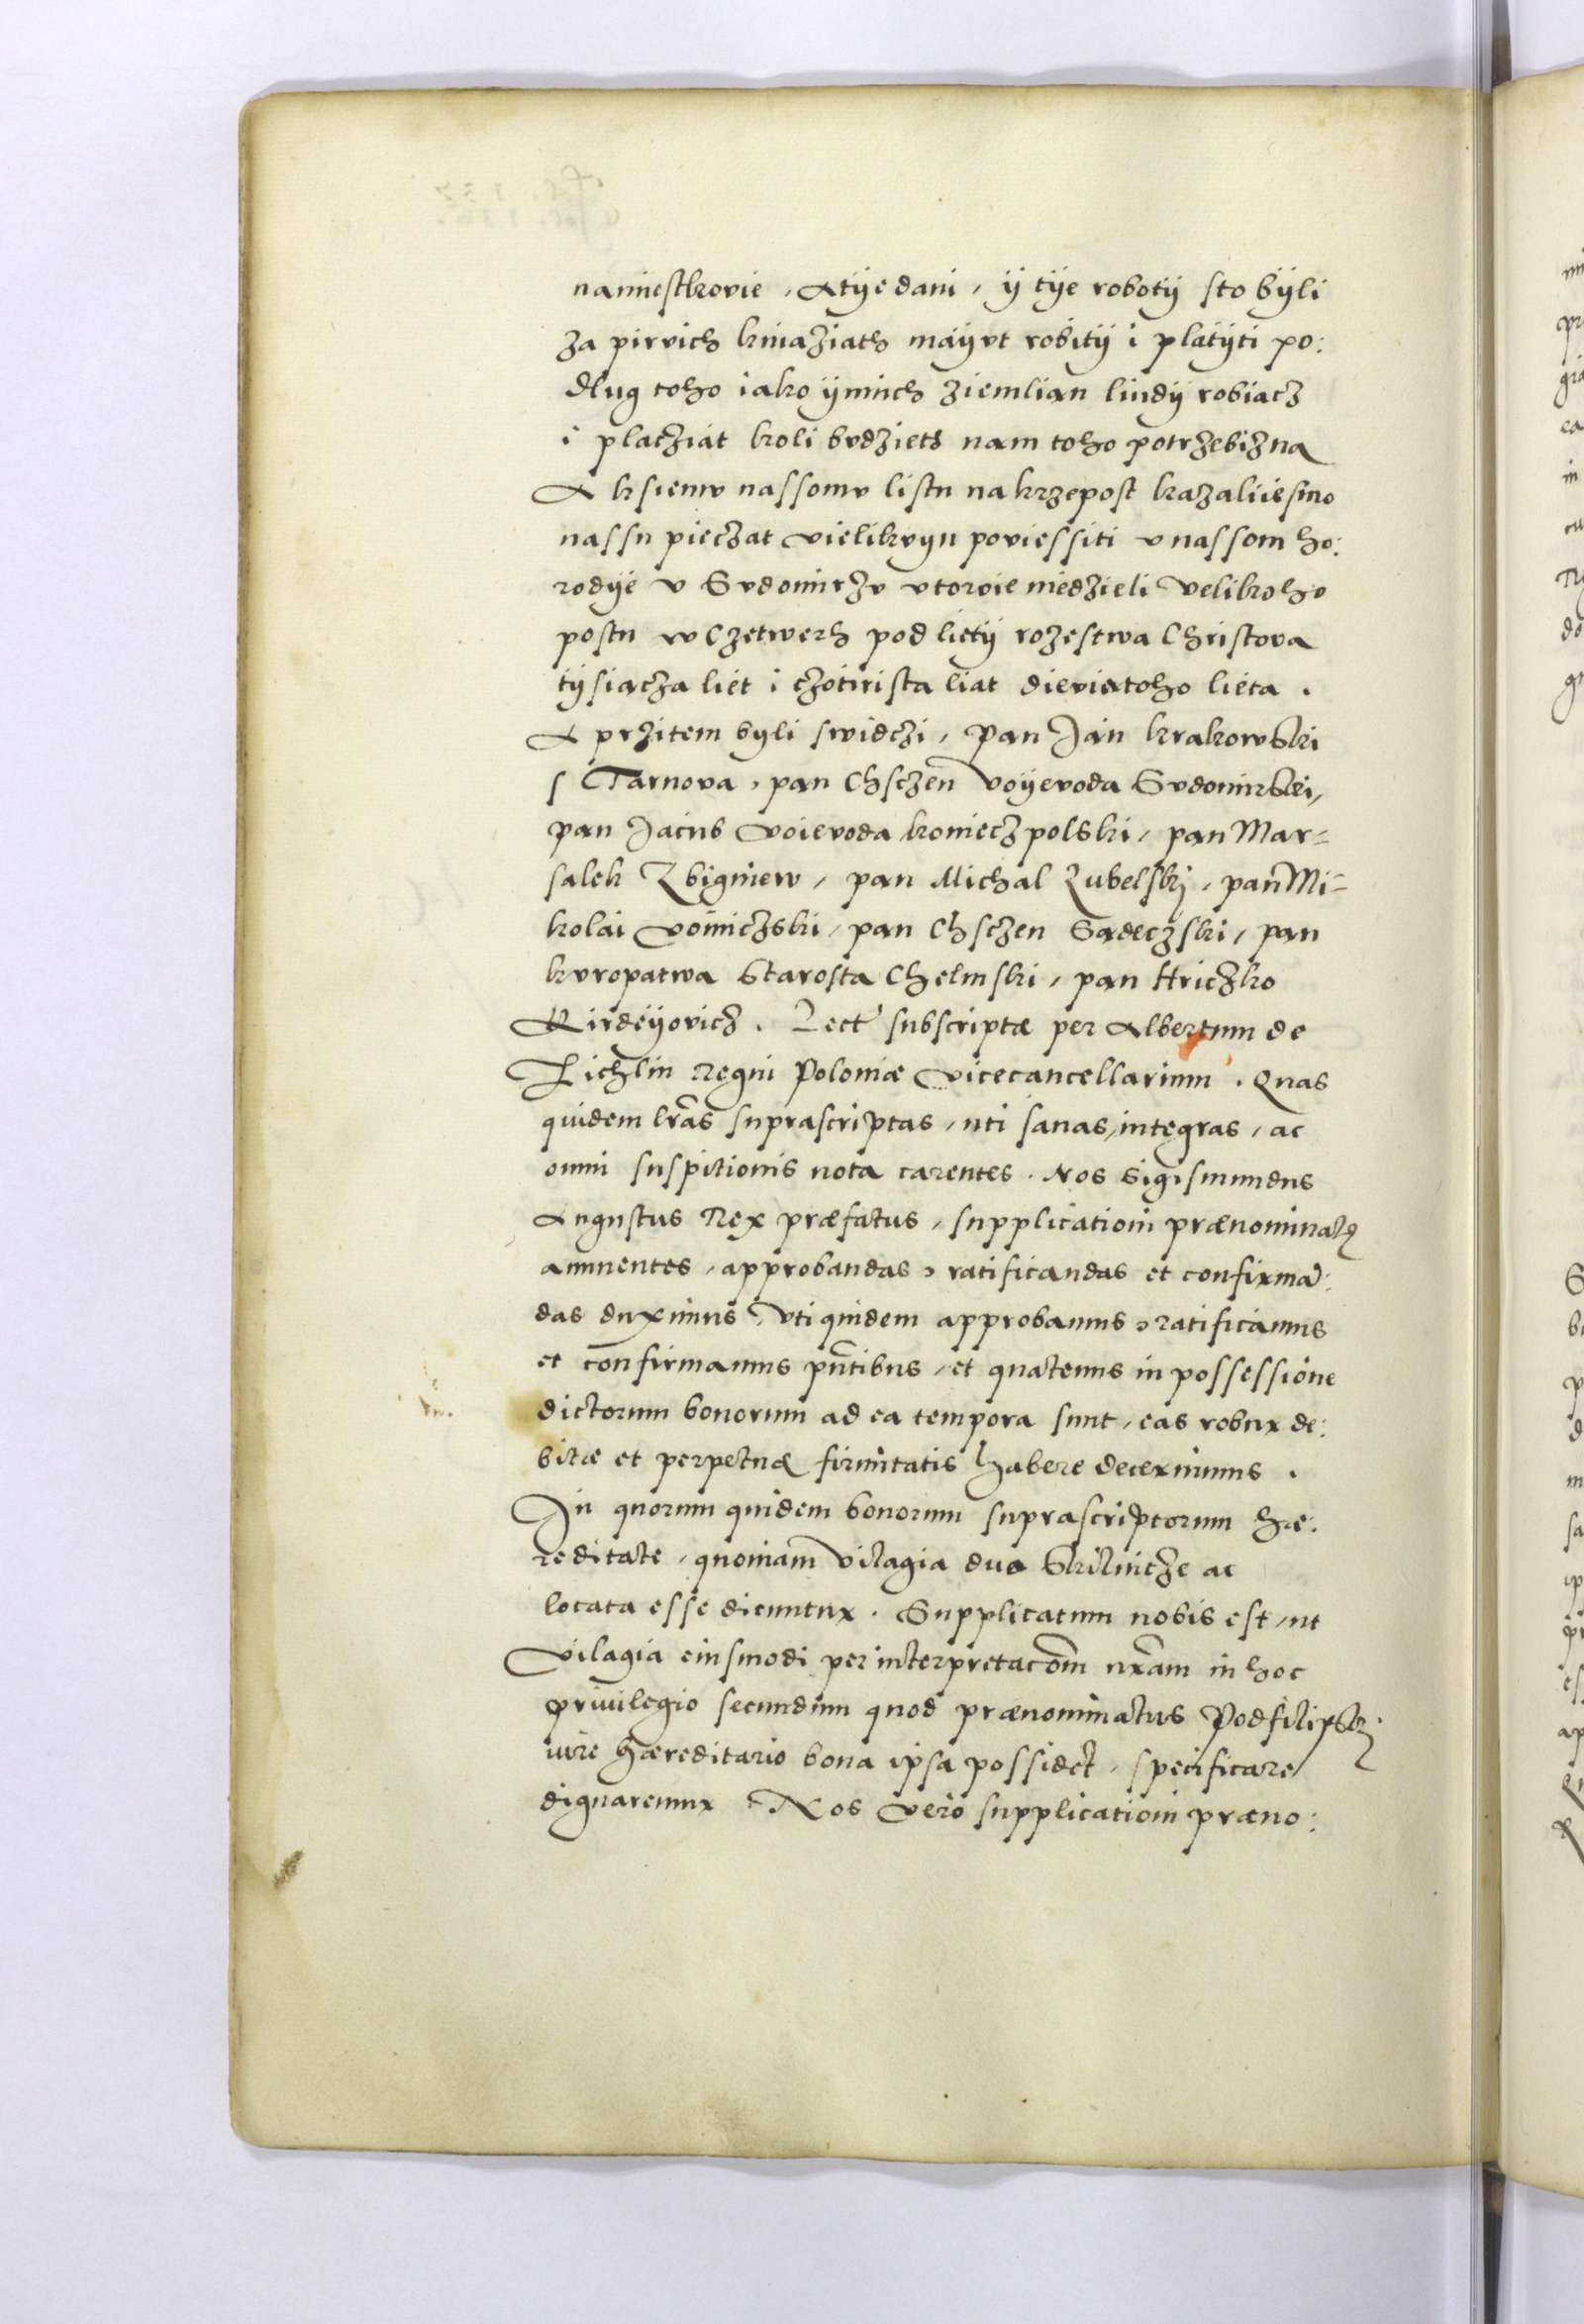 namiestkovie, Atÿe dani, ÿ tÿe robotÿ sto bÿli
za pirvich kniaziath máÿvt robitÿ i platÿti po:
dlug toho iako ÿnnich ziemlian liudÿ robiacz
i placziát koli bvdziets nam toho potrzebizna
A ksiemv nassomv listu na krzepost kazaliiesmo
nassu pieczat vielikvyu poviessiti v nassom ho:
rodÿe v Svdomirzv vtorvie niedzieli velikoho
postu w Czetwerh pod lietÿ rozestwa Christova
tÿsiacza liét i czótirista liat dieviatoho liéta.
A przitem byli swidczi, pan Ján krakowski
s Tarnova, pan Chsczen voÿevoda Svdomirski,
pan Jacus voievoda konieczpolski, pan Mar=
salek Zbigniew, pan Michal Zubelskj, pan Mi=
kolái voiniczski, pan Chsczen Sadeczski, pan
kvropatwa starosta Chelmski, pan Hriczko
Kirdeÿovicz. Lect' subscriptæ per Albertum de
Zichlin Regni Poloniæ vicecancellarium. Quas
quidem lrãs suprascriptas, uti sanas, integras, ac
omni suspitionis nota carentes. Nos Sigismundus
Augustus Rex præfatus, supplicationi prænominatꝝ
annuentes, approbandas, ratificandas et confirmã:
das duximus, vti quidem approbamus, ratificamus
et confirmamus pñtibus, et quatenus in possessione
dictorum bonorum ad ea tempora sunt, eas robur de:
bitæ et perpetuæ firmitatis habere decernimus.
In quorum quidem bonorum suprascriptorum hæ:
reditate, quoniam vilagia duo Skilnicze ac
locata esse dicuntur. Supplicatum nobis est, ut
vilagia eiusmodi per interpretacõm nrãm in hoc
privilegio secundum quod prænominatus Podfilipskj
iure hæreditario bona ipsa possidet, specificare
dignaremur. Nos vero supplicationi præno: